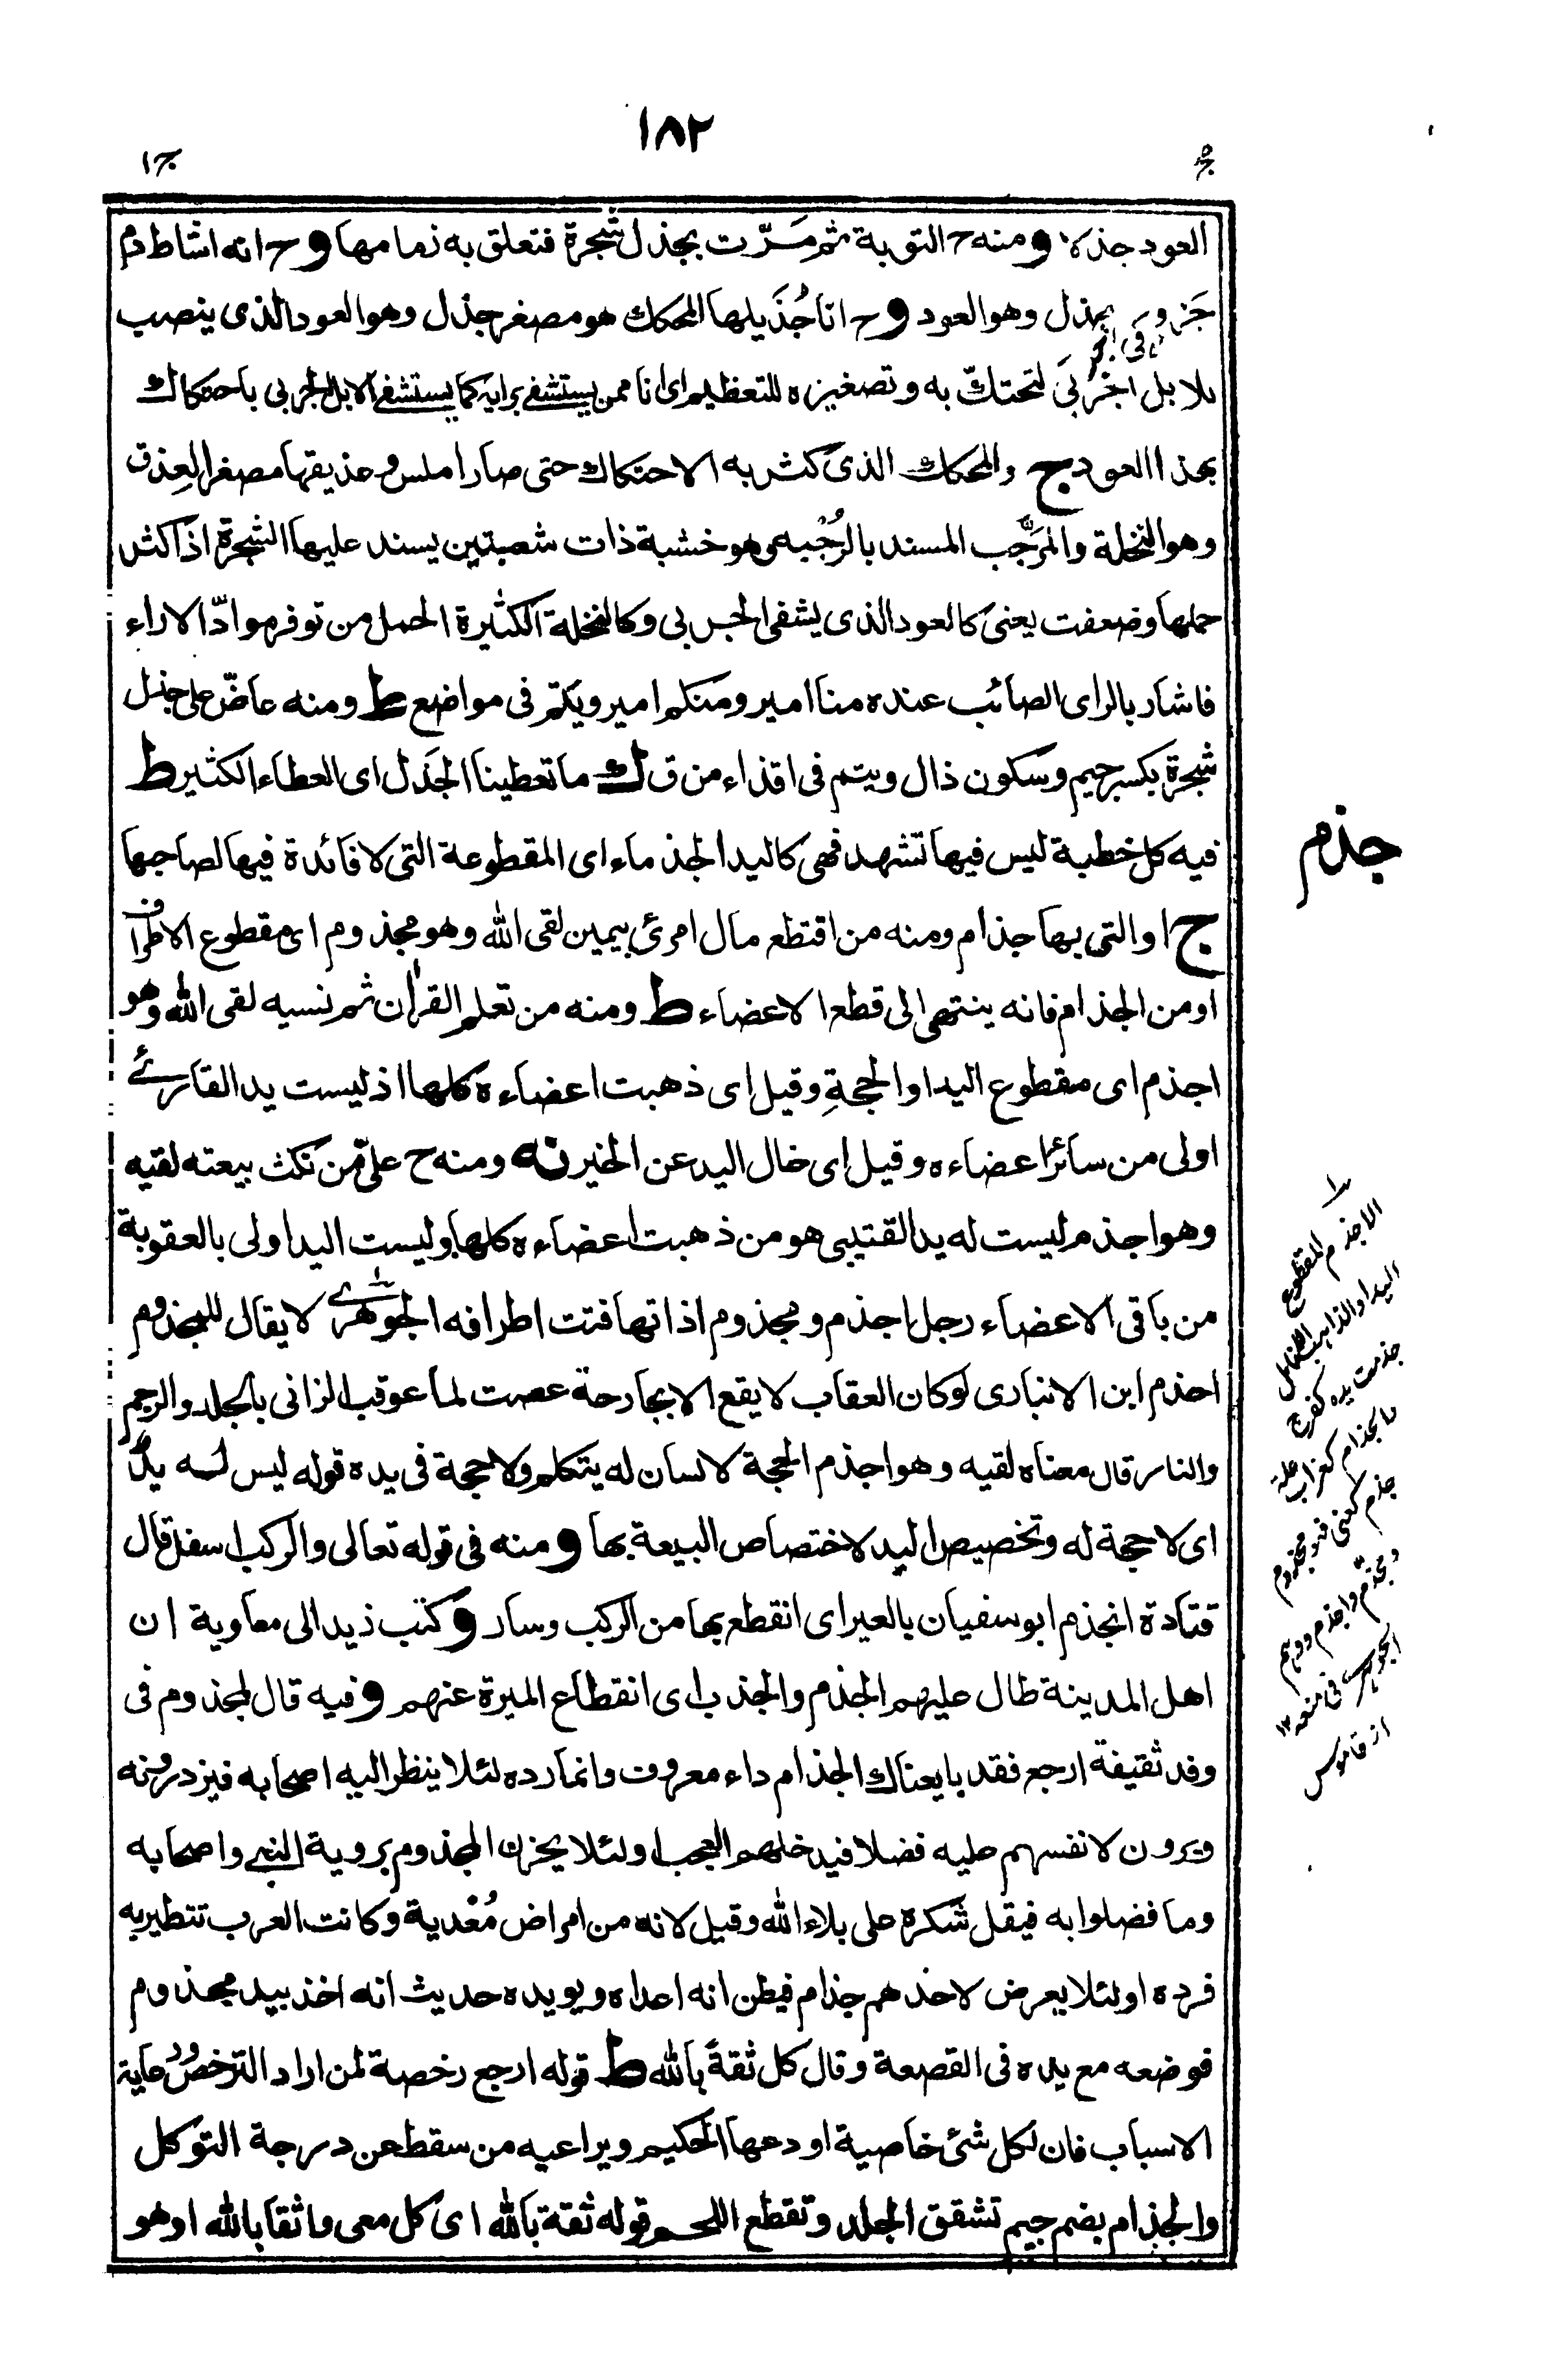 ١٨٢
ج
ج١
العود جذلا ومنه ح التوبة ثم مَرّت بجذل شجرة فتعلق به زمامها وح انه اشاط دم
جَزور بجذل وهو العود وح انا جُذَيلها المحكك هو مصغر جذل وهو العود الذى ينصب
للابل الجَرْبَى لتحتكّ به وتصغيره للتعظيم اى انا ممن يستشفے برايه كما يستشفے الابل الجربى باحتكاك
بهذا العود ج والمحكك الذى كثر به الاحتكاك حتى صار املس وعذيقها مصغر العِذق
وهو النخلة والمرَجَّب المسند بالرُجْبه وهو خشبة ذات شعبتين يسند عليها الشجرة اذا كثر
حملها وضعفت يعنى كالعود الذى يشفى الجربى وكالنخلة الكثيرة الحمل من توفر موادّ الاراء
فاشار بالراى الصائب عنده منا امير ومنكم امير ويكتم فى مواضع ط ومنه عاضّ على جذل
شجرة بكسر جيم وسكون ذال ويتم فى اقذاء من ق ك ما تعطينا الجَذل اى العطاء الكثير ط
فيه كل خطبة ليس فيها تشهد فهى كاليد الجذماء اى المقطوعة التى لا فائدة فيها لصاحبها
ج او التى بها جذام ومنه من اقتطع مال امرئ بيمين لقى الله وهو مجذوم اى مقطوع الاطراف
او من الجذام فانه ينتهى الى قطع الاعضاء ط ومنه من تعلم القرأن ثم نسيه لقى الله وهو
اجذم اى مقطوع اليد او الحجةِ وقيل اى ذهبت اعضاءه كلها اذ ليست يد القارئے
اولى من سائر اعضاءه وقيل اى خال اليد عن الخير نه ومنه ح علىّ من نكث بيعته لقيه
وهو اجذم ليست له يد القتيبى هو من ذهبت اعضاءه كلها وليست اليد اولى بالعقوبة
من باقى الاعضاء رجل اجذم ومجذوم اذا تهافتت اطرافه الجوهرے لا يقال للمجذوم
اجذم ابن الانبارى لو كان العقاب لا يقع الا بجارحة عصت لما عوقب الزانى بالجلد والرجم
والنار قال معناه لقيه وهو اجذم الحجة لا لسان له يتكلم ولا حجة فى يده قوله ليس له يدٌ
اى لا حجة له وتخصيص اليد لاختصاص البيعة بها ومنه فى قوله تعالى والركب اسفل قال
قتادة انجذم ابو سفيان بالعير اى انقطع بها من الركب وسار وكتب زيد الى معاوية ان
اهل المدينة طال عليهم الجذم والجذب اى انقطاع الميرة عنهم وفيه قال لمجذوم فى
وفد ثقيفة ارجع فقد بايعناك الجذام داء معروف وانما رده لئلا ينظر اليه اصحابه فيزدرونه
ويرون لانفسهم عليه فضلا فيدخلهم العجب او لئلا يحزن المجذوم بروية النبے واصحابه
وما فضلوا به فيقل شكره على بلاء الله وقيل لانه من امراض مُعْدية وكانت العرب تتطير به
فرده او لئلا يعرض لاحدهم جذام فيظن انه اعداه ويويده حديث انه اخذ بيد مجذوم
فوضعه مع يده فى القصعة وقال كل ثقةً بالله ط قوله ارجع رخصة لمن اراد الترخص ورعاية
الاسباب فان لكل شئ خاصية اودعها الحكيم ويراعيه من سقط عن درجة التوكل
والجذام بضم جيم تشقق الجلد وتقطع اللحم قوله ثقة بالله اى كل معى واثقا بالله او هو
جذم
الاجذم المقطوع
اليد او الذاهب الانامل
جذمت يده كفرح
والجذام كغراب علة
جذم كعنى فهو مجذوم
ومجذّم واجذم ووهم
الجوهرے فى منعه ١٢
از قاموس